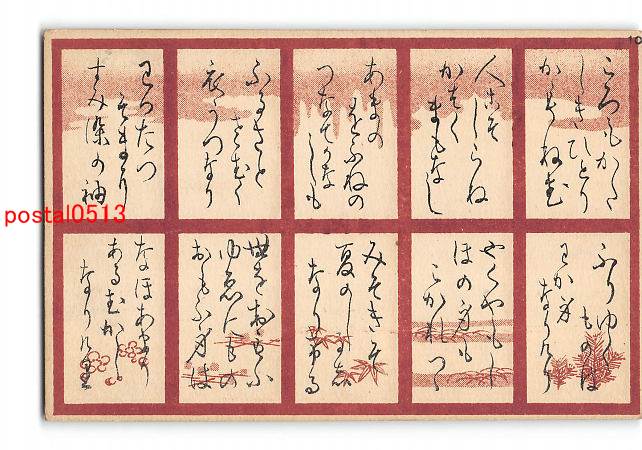 ころもかた
しきひとり
かもねむ
人こそ
しらね
かわく
まもなし
あまの
をふねの
つなてかな
しも
ふるさと
さむく
衣うつなり
わかたつ
そまに
すみ染の袖
ふりゆく
ものは
わか身
なりけり
やくやもし
ほの身も
こかれつゝ
みそきそ
夏のしるし
なりける
世をおもふ
ゆゑにもの
おもふ身は
なほあまり
あるむかし
なりけり
postal0513